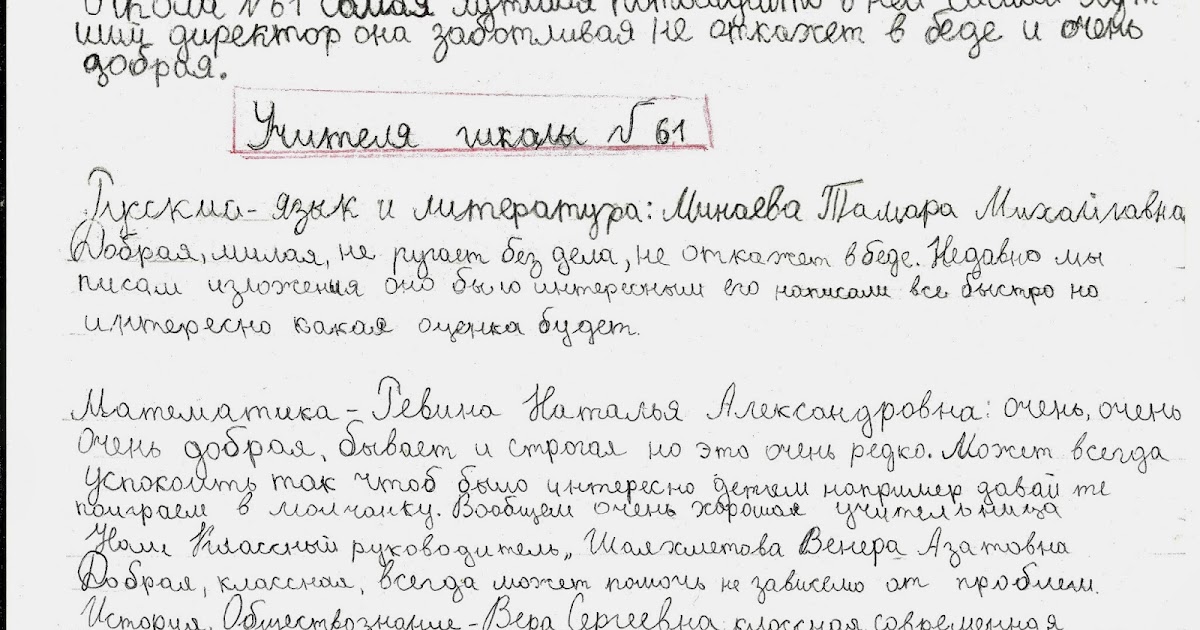 Школа №61 самая лучшая потомушто в ней
ший директор она заботливая не откажет в беде и очень
добрая.
Учителя школы №61
Русский-язык и литература: Минаева Тамара Михайлавна
Добрая, милая, не ругает без дела, не откажет в беде. Недавно мы
писали изложения оно было интересным его написали все быстро но
интересно какая оценка будет.
Математика - Ревина Наталья Александровна: очень, очень
очень добрая, бывает и строгая но это очень редко. Может всегда
успокоить так чтоб было интересно детям например давай те
поиграем в молчанку. Вообщем очень хорошая учительница
Наш Классный руководитель„ Шаяхметова Венера Азатовна
Добрая, классная, всегда может помочь не зависемо от проблем.
История, Обществознание - Вера Сергеевна классная современная